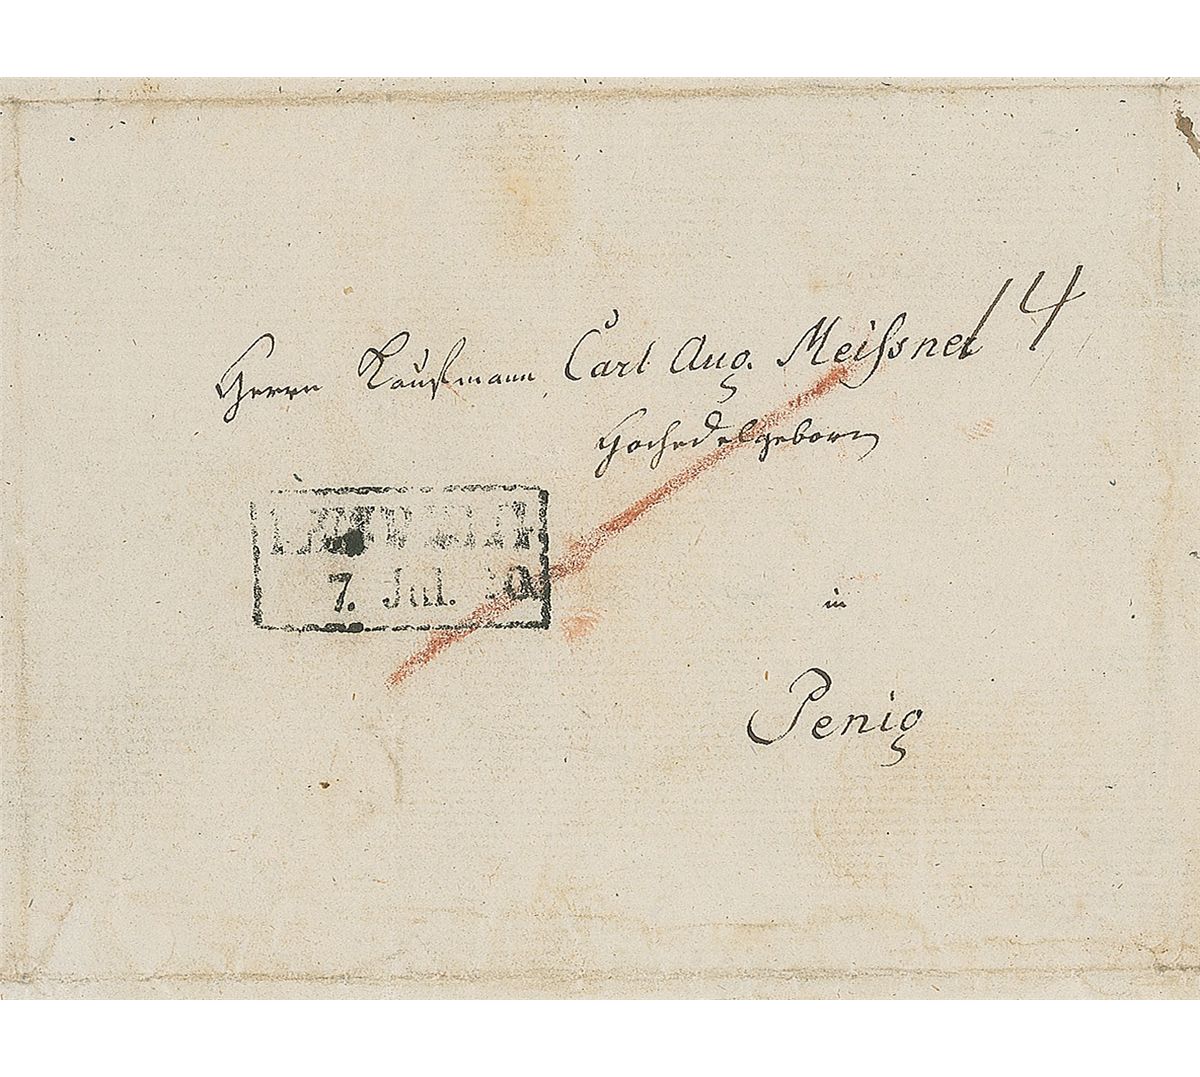 14
Herrn Kaufmann Carl Aug. Meiſsner
Hochedelgeborn
7. Jul.
in
Penig